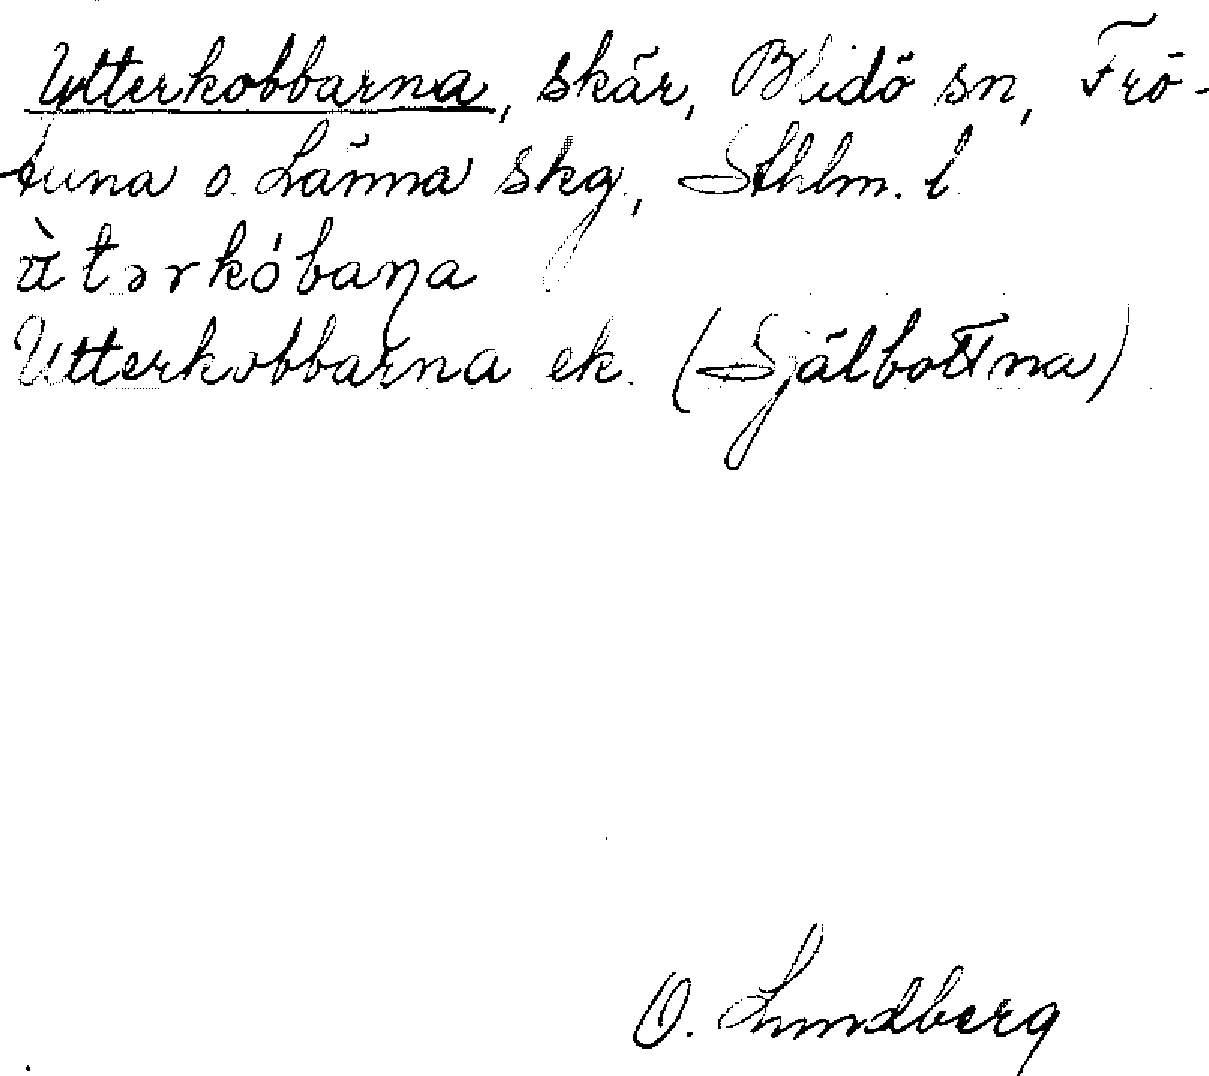 Utterkobbarna, skär, Blidö sn, Frö-
tuna o. Länna skg, Sthlm. l.
Utterkobbarna ek. (Själbottna)
O. Lundberg